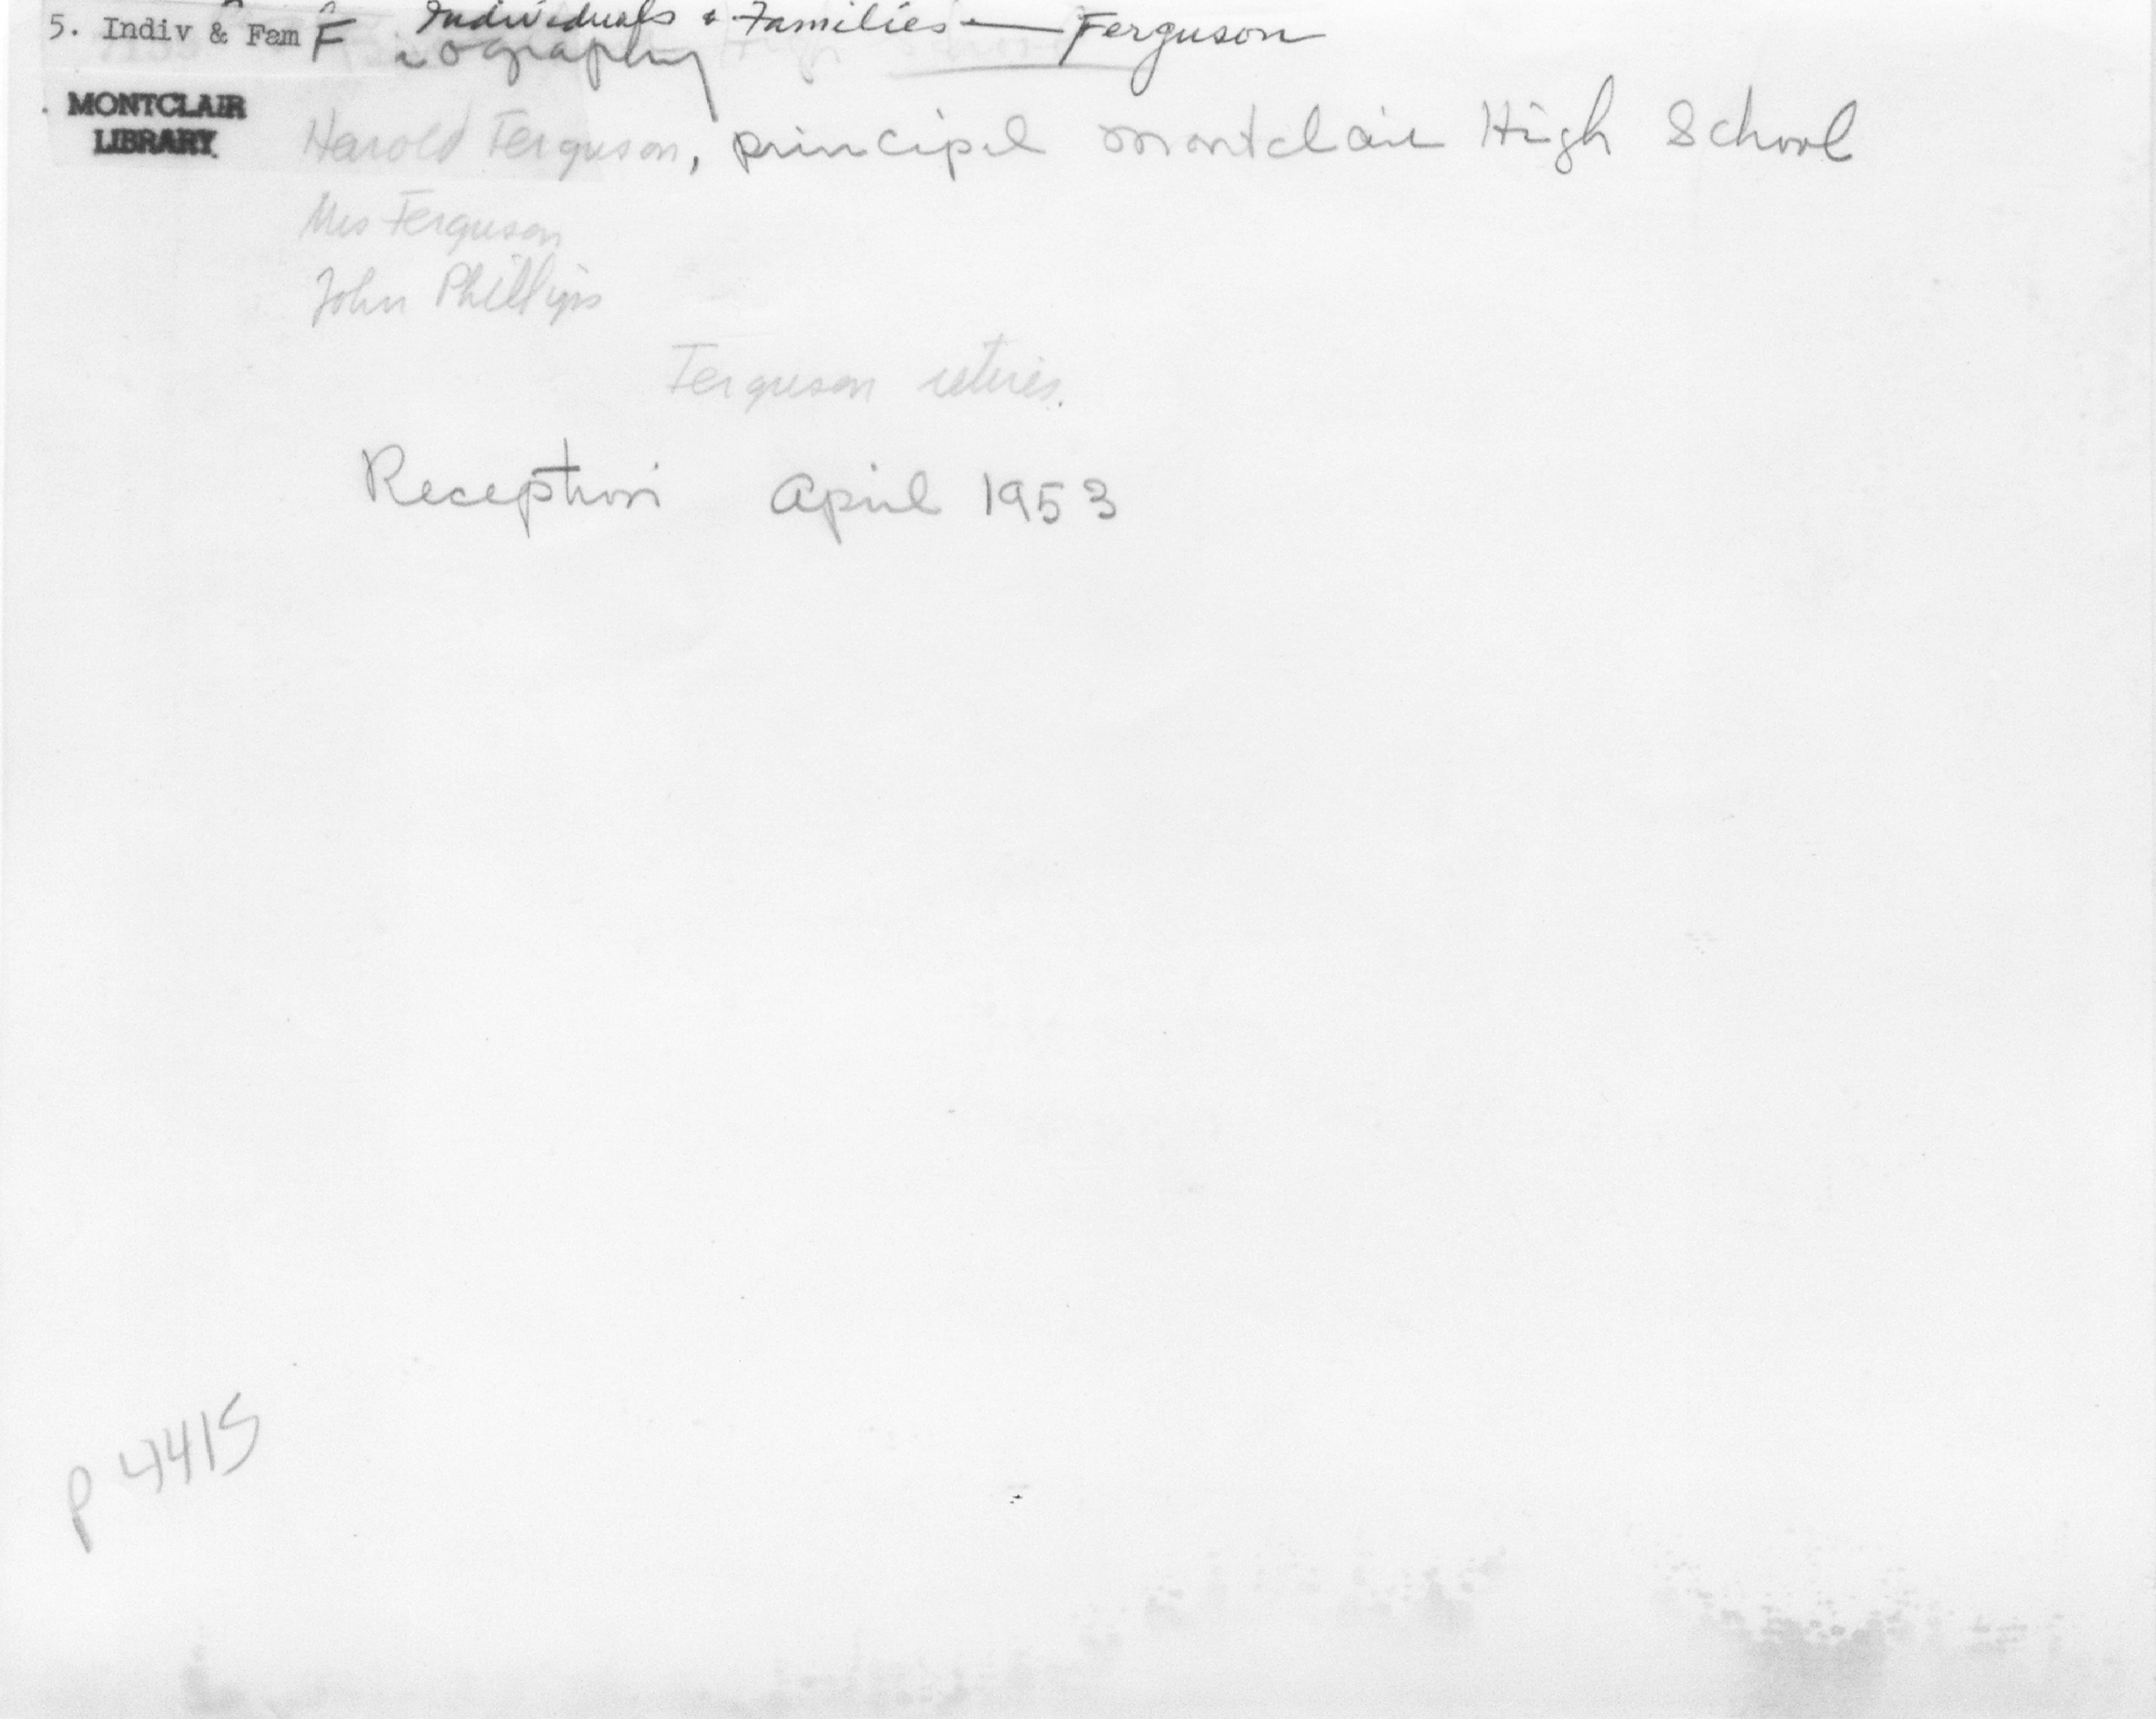 5. Indiv & Fam F Individuals & Families — Ferguson
iography
MONTCLAIR
LIBRARY
Harold Ferguson, principal Montclair High School
Mrs Ferguson
John Phillips
Ferguson retires.
Reception April 1953
P 4415